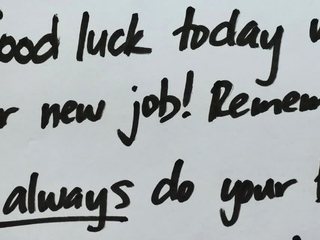 ood luck today
r new job! Remem
always do your